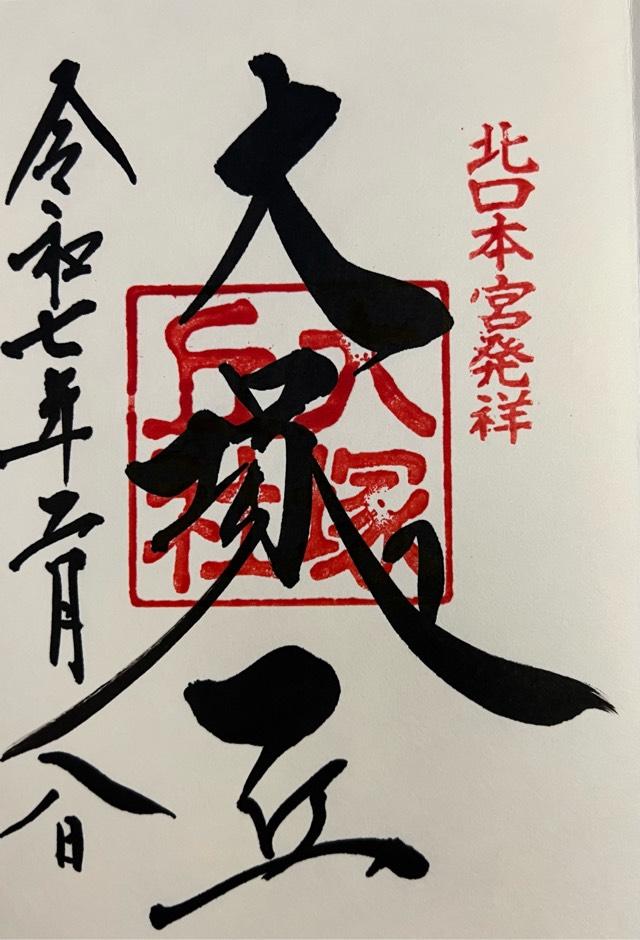 北口本宮発祥
大塚丘
大塚
丘社
令和七年二月八日